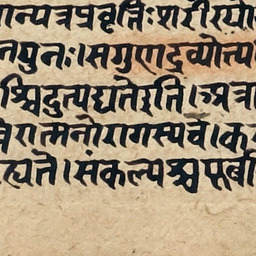 न्यत्रप्रवृत्तिःशरीरयो
तपुनः।सगुणद्रव्योत्प
श्चिदुत्पद्यतेइति।अत्रा
रात्मनोरागस्यचे।क
ह्यते।संकल्पश्चपूर्बा